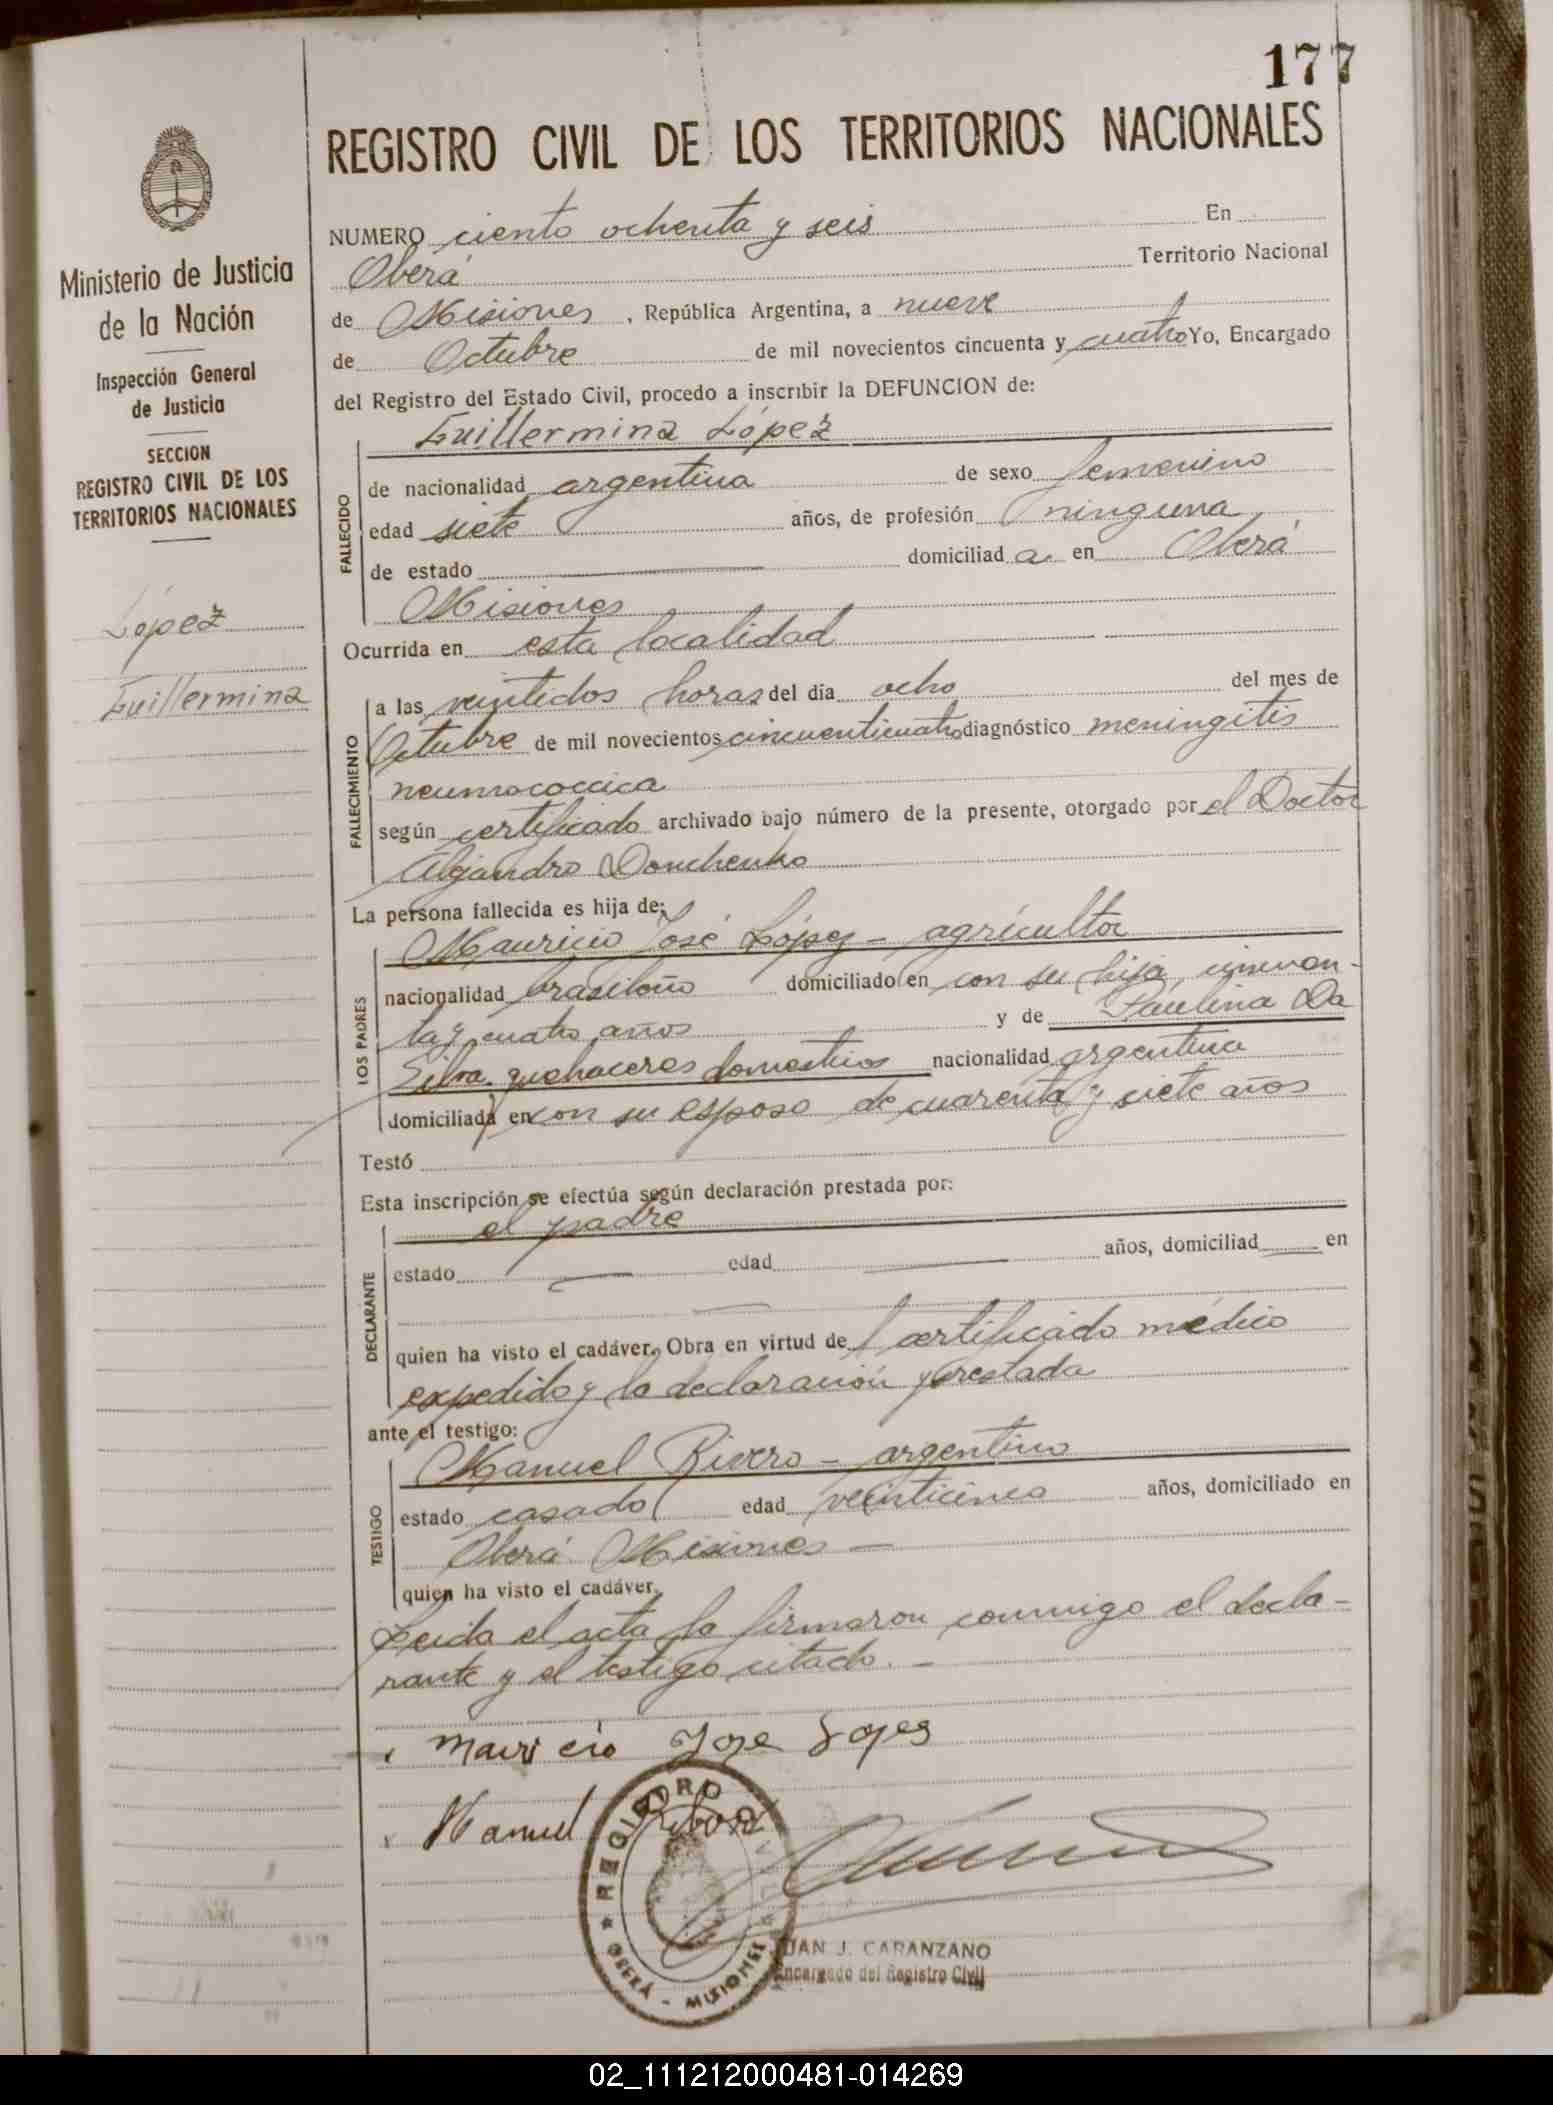 177
REGISTRO CIVIL DE LOS TERRITORIOS NACIONALES
Ministerio de Justicia
de la Nación
Inspección General
de Justicia
SECCION
REGISTRO CIVIL DE LOS
TERRITORIOS NACIONALES
López
Guillermina
NUMERO ciento ochenta y seis En
Oberá Territorio Nacional
de Misiones, República Argentina, a nueve
de Octubre de mil novecientos cincuenta y cuatro Yo, Encargado
del Registro del Estado Civil, procedo a inscribir la DEFUNCION de:
Guillermina López
FALLECIDO
de nacionalidad argentina de sexo femenino
edad siete años, de profesión ninguna,
de estado domiciliad a en Oberá
Misiones
Ocurrida en esta localidad
FALLECIMIENTO
a las veintidos horas del día ocho del mes de
Octubre de mil novecientos cincuenticuatro diagnóstico meningitis
neumococcica
según certificado archivado bajo número de la presente, otorgado por el Doctor
Alejandro Donchenko
La persona fallecida es hija de:
LOS PADRES
Mauricio José López - agricultor
nacionalidad brasileño domiciliado en con su hija, cincuen-
ta y cuatro años y de Paulina Da
Silva. quehaceres domesticos nacionalidad argentina
domiciliada en con su esposo de cuarenta y siete años
Testó
Esta inscripción se efectúa según declaración prestada por:
DECLARANTE
el padre
estado edad años, domiciliad en
quien ha visto el cadáver. Obra en virtud de certificado médico
expedido y la declaración prestada
ante el testigo:
TESTIGO
Manuel Rivero - argentino
estado casado edad veinticinco años, domiciliado en
Oberá Misiones -
quien ha visto el cadáver.
Leida el acta la firmaron conmigo el decla-
rante y el testigo citado. -
Mauricio Jose Lopes
Manuel
REGISTRO CIVIL
OBERÁ - MISIONES
JUAN J. CARANZANO
Encargado del Registro Civil
02_111212000481-014269